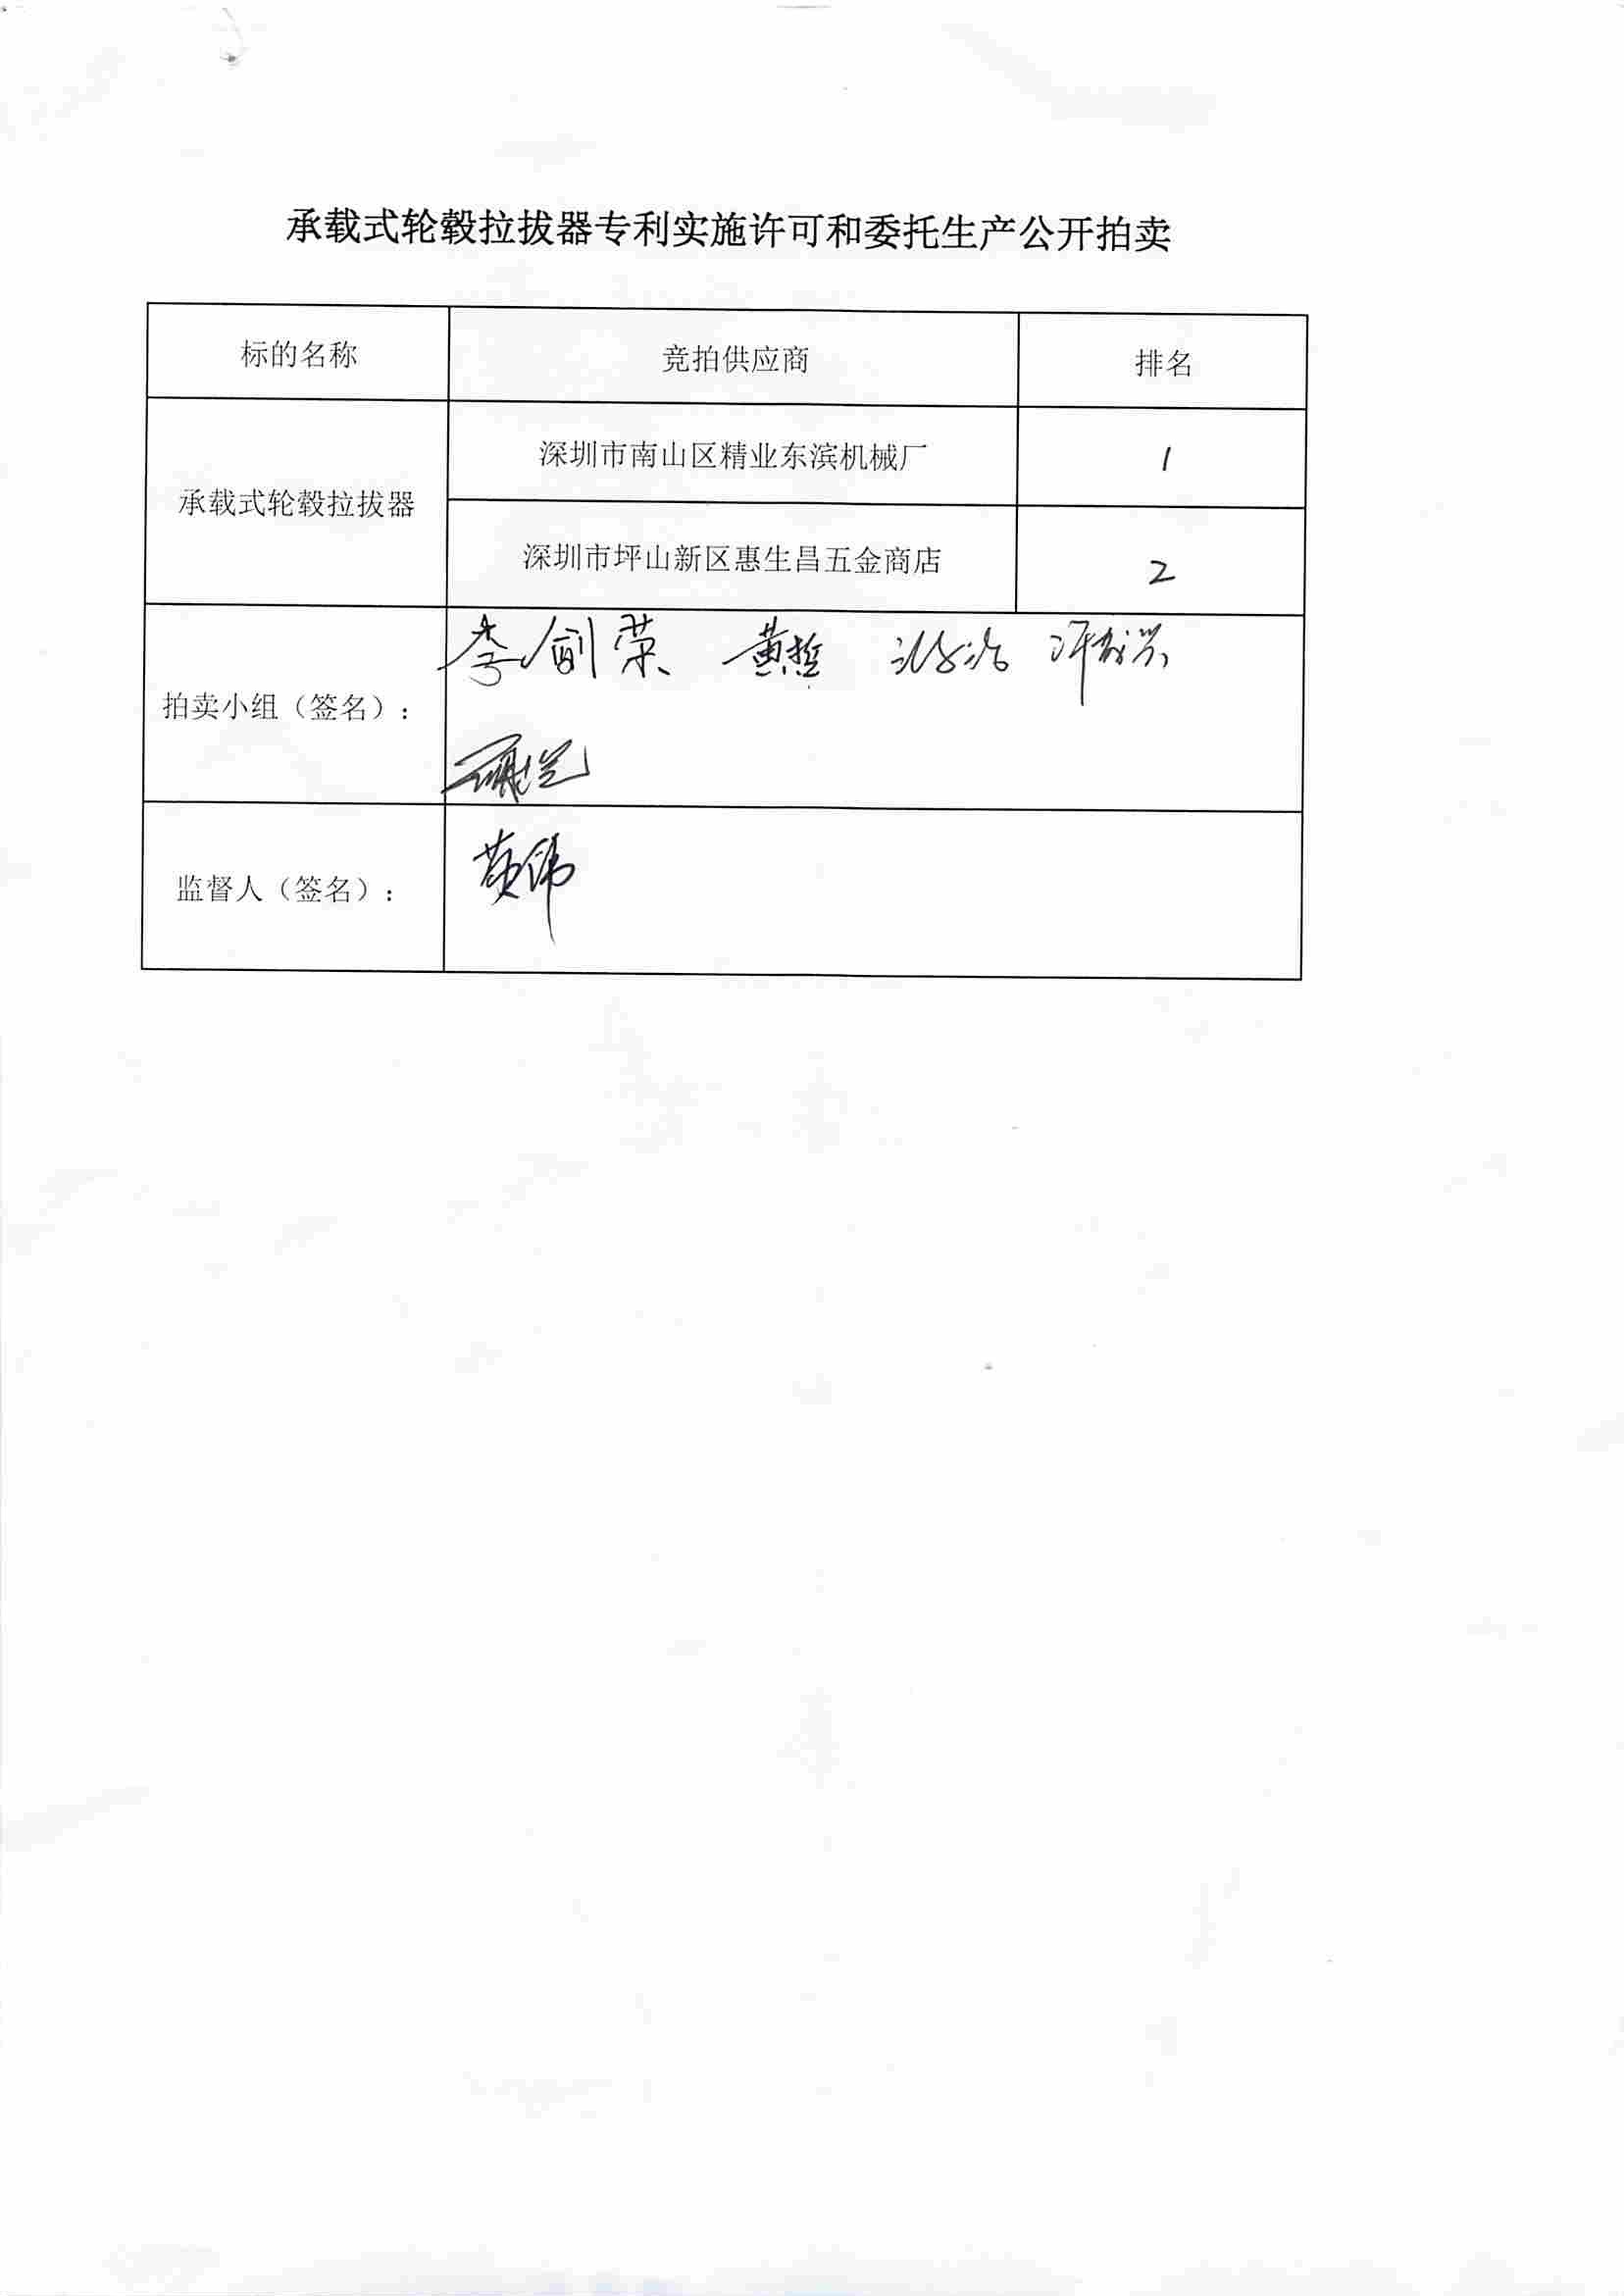 承载式轮毂拉拔器专利实施许可和委托生产公开拍卖
标的名称 竞拍供应商 排名
深圳市南山区精业东滨机械厂 1
承载式轮毂拉拔器
深圳市坪山新区惠生昌五金商店 2
黄哲
拍卖小组（签名）：
黄伟
监督人（签名）：